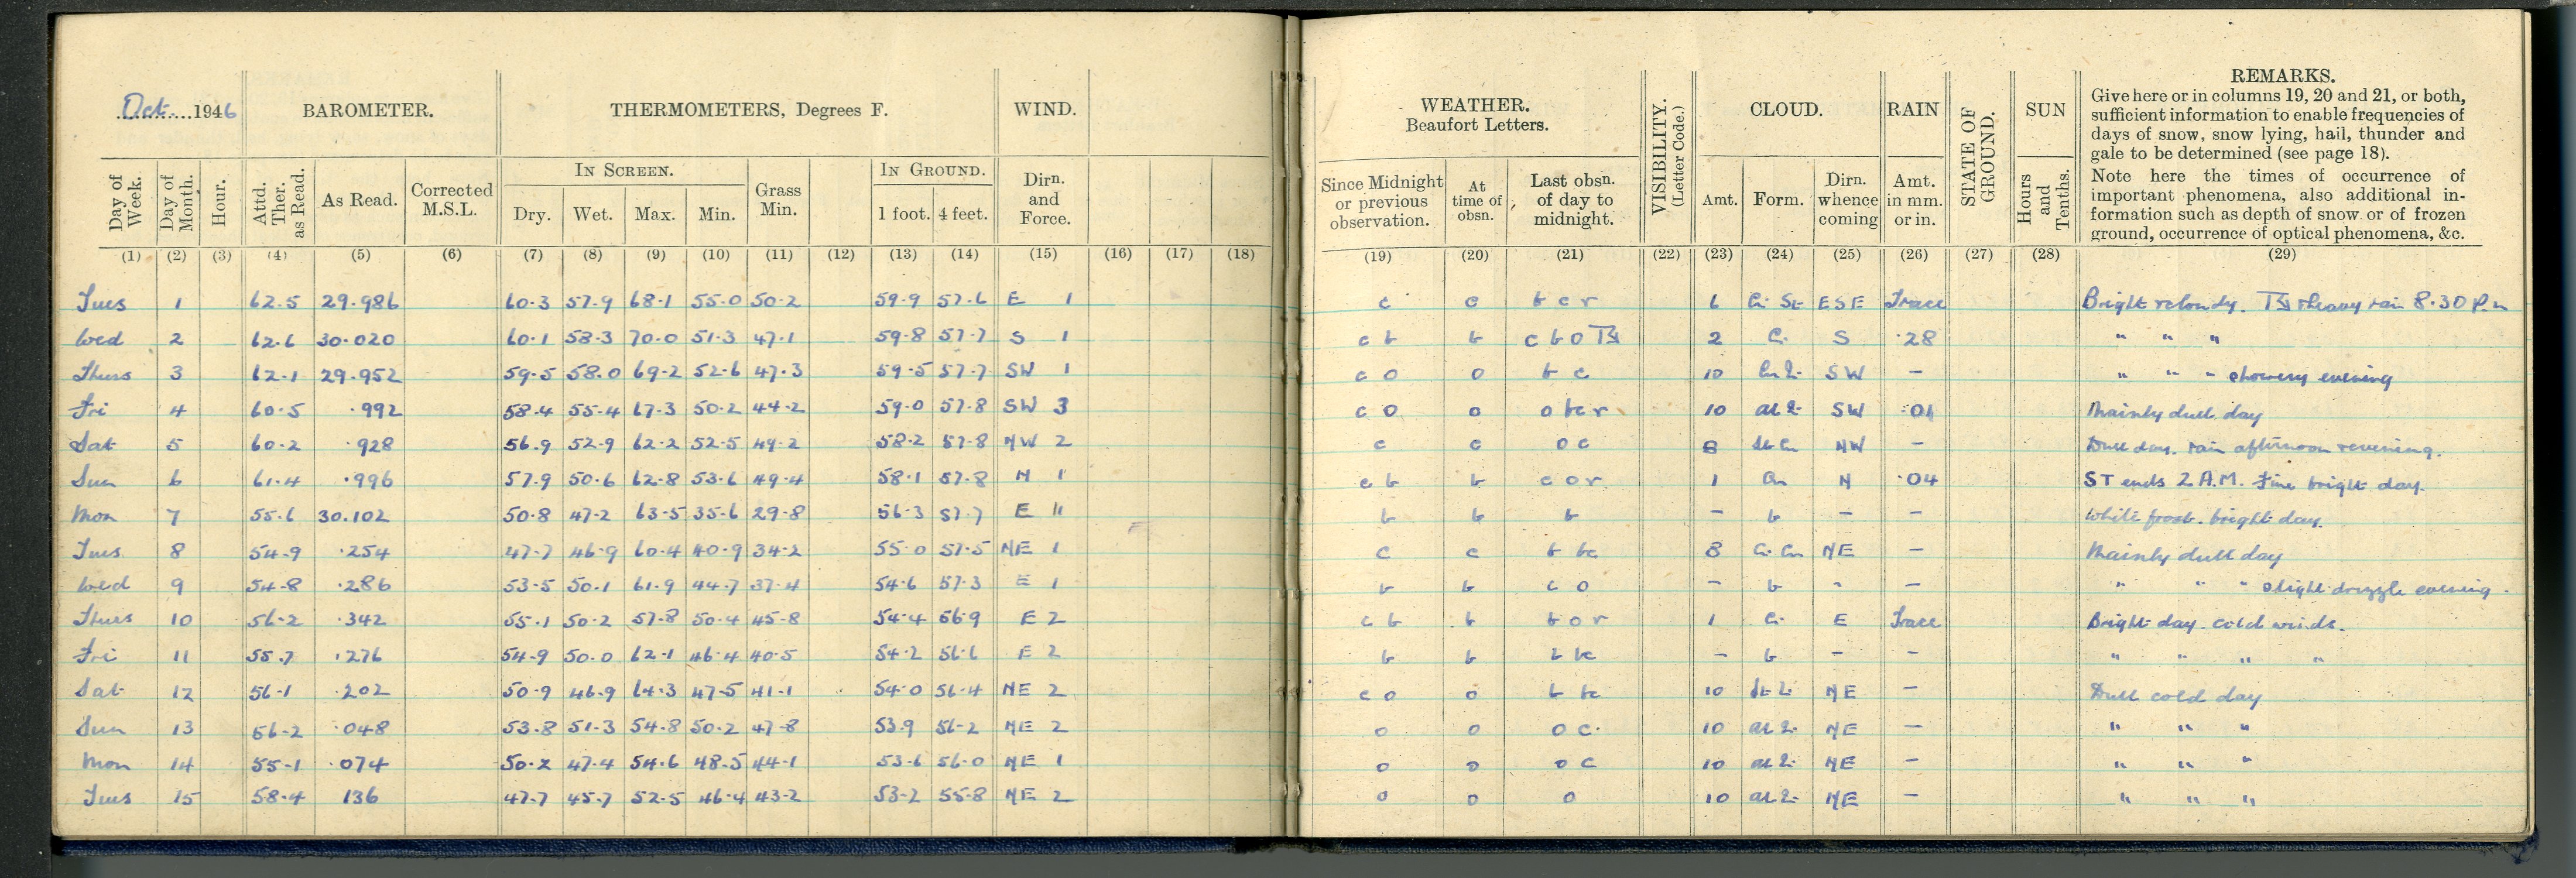 Oct. 1946
BAROMETER.
THERMOMETERS, Degrees F.
WIND.
Day of Week.
Day of Month.
Hour.
Attd. Ther. as Read.
As Read.
Corrected M.S.L.
IN SCREEN.
Dry. Wet. Max. Min.
Grass Min.
IN GROUND.
1 foot. 4 feet.
Dirn. and Force.
(1) (2) (3) (4) (5) (6) (7) (8) (9) (10) (11) (12) (13) (14) (15) (16) (17) (18)
Tues 1 62.5 29.986 60.3 57.9 68.1 55.0 50.2 59.9 57.6 E 1
Wed 2 62.6 30.020 60.1 58.3 70.0 51.3 47.1 59.8 57.7 S 1
Thurs 3 62.1 29.952 59.5 58.0 69.2 52.6 47.3 59.5 57.7 SW 1
Fri 4 60.5 .992 58.4 55.4 67.3 50.2 44.2 59.0 57.8 SW 3
Sat 5 60.2 .928 56.9 52.9 62.2 52.5 49.2 58.2 57.8 NW 2
Sun 6 61.4 .996 57.9 50.6 62.8 53.6 49.4 58.1 57.8 N 1
Mon 7 55.6 30.102 50.8 47.2 63.5 35.6 29.8 56.3 57.7 E
Tues 8 54.9 .254 47.7 46.9 60.4 40.9 34.2 55.0 57.5 NE 1
Wed 9 54.8 .286 53.5 50.1 61.9 44.7 37.4 54.6 57.3 E 1
Thurs 10 56.2 .342 55.1 50.2 57.8 50.4 45.8 54.4 56.9 E 2
Fri 11 55.7 .276 54.9 50.0 62.1 46.4 40.5 54.2 56.6 E 2
Sat 12 56.1 .202 50.9 46.9 47.5 41.1 54.0 56.4 NE 2
Sun 13 56.2 .048 53.8 51.3 54.8 50.2 47.8 53.9 56.2 NE 2
Mon 14 55.1 .074 50.2 47.4 54.6 48.5 44.1 53.6 56.0 NE 1
Tues 15 58.4 136 47.7 45.7 52.5 46.4 43.2 53.2 55.8 NE 2
WEATHER.
Beaufort Letters.
Since Midnight or previous observation.
At time of obsn.
Last obsn. of day to midnight.
VISIBILITY. (Letter Code.)
CLOUD.
Amt. Form.
Dirn. whence coming
RAIN
Amt. in mm. or in.
STATE OF GROUND.
SUN
Hours and Tenths.
REMARKS.
Give here or in columns 19, 20 and 21, or both,
sufficient information to enable frequencies of
days of snow, snow lying, hail, thunder and
gale to be determined (see page 18).
Note here the times of occurrence of
important phenomena, also additional in-
formation such as depth of snow or of frozen
ground, occurrence of optical phenomena, &c.
(19) (20) (21) (22) (23) (24) (25) (26) (27) (28) (29)
c c b c r 6 Ci St ESE Trace Bright & cloudy. & heavy rain 8.30 P.m
c b b c b o 2 Ci S .28 " " "
c o o b c 10 SW - " " " showery evening
c o o o bc r 10 SW .01 Mainly dull day
c c o c 8 St Cu NW - Dull day. rain afternoon & evening.
c b b c o r 1 Cu N .04 ST ends 2 A.M. Fine bright day.
b b b - b - - White frost. bright day.
c c b bc 8 Ci Cu NE - Mainly dull day
b b c o - b - - " " " slight drizzle evening.
c b b b o r 1 Ci E Trace Bright day. cold winds.
b b b bc - b - - " " " "
c o o b bc 10 NE - Dull cold day
o o o c. 10 NE - " " "
o o o c 10 NE - " " "
o o o 10 NE - " " "